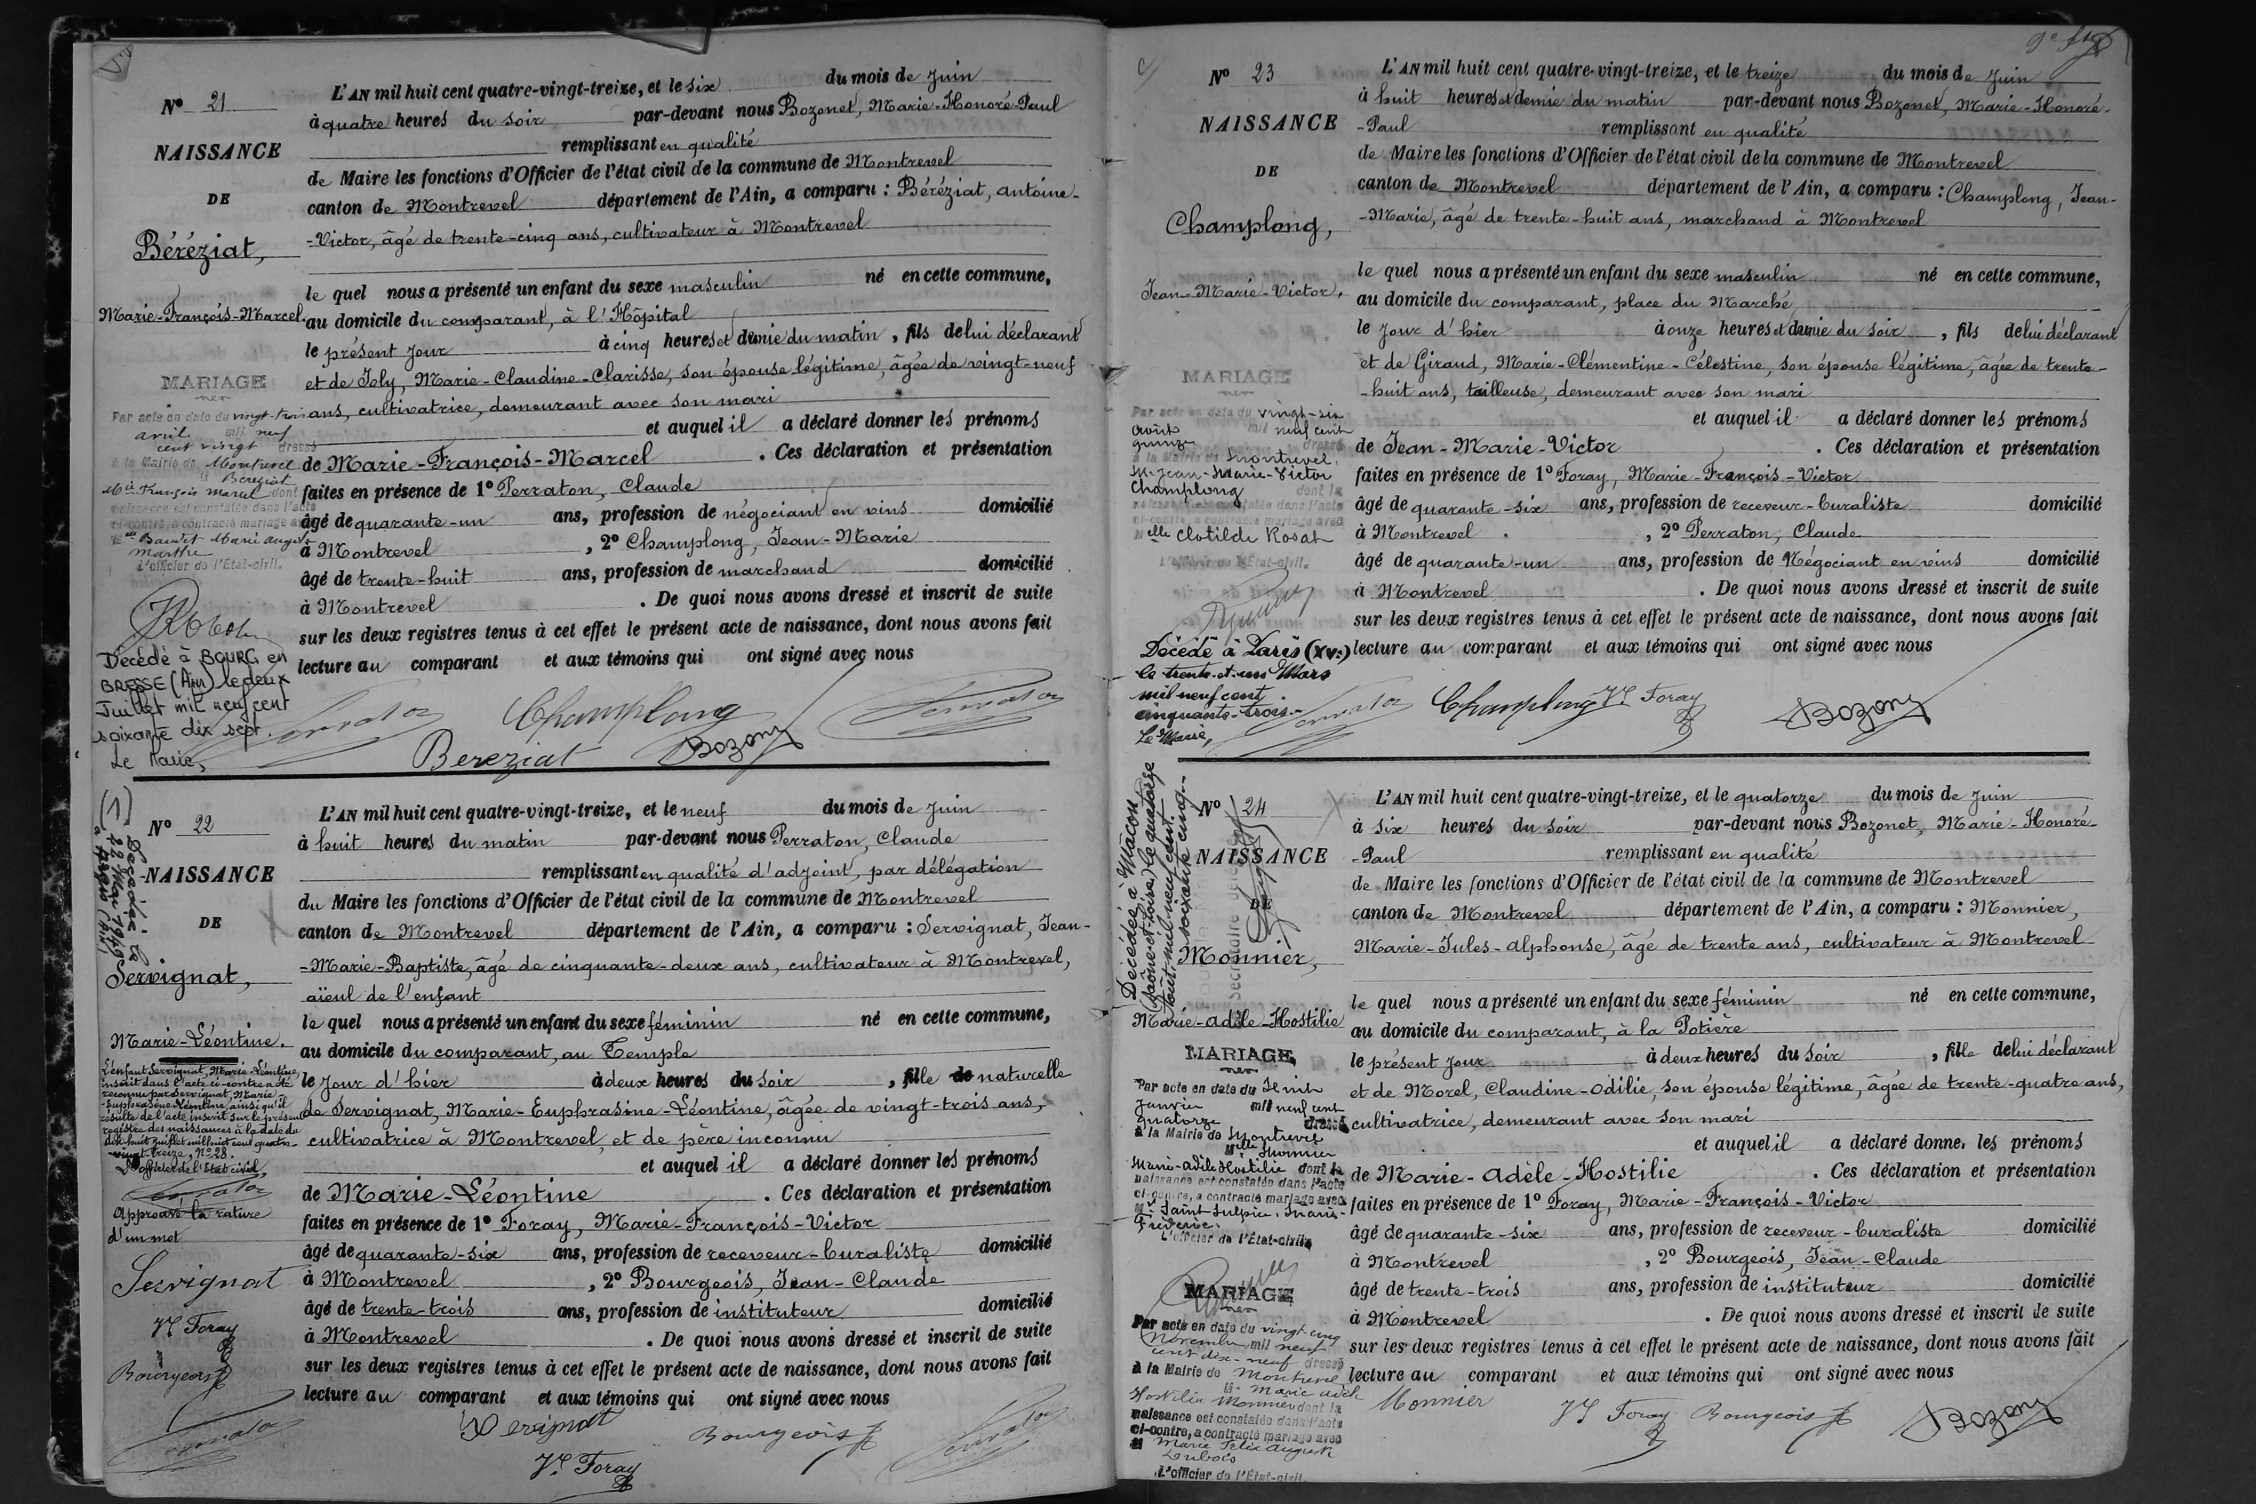 N° 21
NAISSANCE
DE
Béréziat,
Marie-François-Marcel.
L'AN mil huit cent quatre-vingt-treize, et le six du mois de Juin
à quatre heures du soir par-devant nous Bozonet, Marie-Honoré-Paul
remplissant en qualité
de Maire les fonctions d'Officier de l'état civil de la commune de Montrevel
canton de Montrevel département de l'Ain, a comparu : Béréziat, antoine-
-Victor, âgé de trente-cinq ans, cultivateur à Montrevel
le quel nous a présenté un enfant du sexe masculin né en cette commune,
au domicile du comparant, à l'Hôpital
le présent jour à cinq heures et demie du matin, fils de lui déclarant
et de Joly, Marie-Claudine-Clarisse, son épouse légitime, âgée de vingt-neuf
ans, cultivatrice, demeurant avec son mari
et auquel il a déclaré donner les prénoms
de Marie-François-Marcel . Ces déclaration et présentation
faites en présence de 1° Perraton, Claude
âgé de quarante-un ans, profession de négociant en vins domicilié
à Montrevel , 2° Champlong, Jean-Marie
âgé de trente-huit ans, profession de marchand domicilié
à Montrevel . De quoi nous avons dressé et inscrit de suite
sur les deux registres tenus à cet effet le présent acte de naissance, dont nous avons fait
lecture au comparant et aux témoins qui ont signé avec nous
Perraton Champlong Perraton
Bereziat Bozonet
MARIAGE
Par acte en date du vingt-trois
avril mil neuf
cent vingt dressé
à la Mairie de Montrevel
M. Béréziat
Mie François Marcel dont
naissance est constatée dans l'acte
ci-contre, a contracté mariage avec
Elle Baudet Marie
Marthe
L'officier de l'État-civil.
Décédé à BOURG en
BRESSE (Ain) le deux
Juillet mil neuf cent
soixante dix sept.
Le Maire,
N° 22
NAISSANCE
DE
Servignat,
Marie-Léontine.
(1) Décédée le
22 Mai 1949
L'AN mil huit cent quatre-vingt-treize, et le neuf du mois de Juin
à huit heures du matin par-devant nous Perraton, Claude
remplissant en qualité d'adjoint, par délégation
du Maire les fonctions d'Officier de l'état civil de la commune de Montrevel
canton de Montrevel département de l'Ain, a comparu : Servignat, Jean-
-Marie-Baptiste, âgé de cinquante-deux ans, cultivateur à Montrevel,
aïeul de l'enfant
le quel nous a présenté un enfant du sexe féminin né en cette commune,
au domicile du comparant, au Temple
le jour d'hier à deux heures du soir , fille de naturelle
de Servignat, Marie-Euphrasine-Léontine, âgée de vingt-trois ans,
cultivatrice à Montrevel et de père inconnu
et auquel il a déclaré donner les prénoms
de Marie-Léontine . Ces déclaration et présentation
faites en présence de 1° Foray, Marie-François-Victor
âgé de quarante-six ans, profession de receveur-buraliste domicilié
à Montrevel , 2° Bourgeois, Jean-Claude
âgé de trente-trois ans, profession de instituteur domicilié
à Montrevel . De quoi nous avons dressé et inscrit de suite
sur les deux registres tenus à cet effet le présent acte de naissance, dont nous avons fait
lecture au comparant et aux témoins qui ont signé avec nous
Servignat Bourgeois Perraton
Vr Foray
L'enfant Servignat, Marie-Léontine,
inscrit dans l'acte ci-contre a été
reconnu par Servignat, Marie-
-Euphrasine-Léontine, ainsi qu'il
résulte de l'acte inscrit sur le présent
registre des naissances à la date du
dix-huit juillet mil huit cent quatre-
vingt-treize, N° 28.
L'officier de l'état civil,
Perraton
Approuvé la rature
d'un mot
Servignat
Vr Foray
Bourgeois
Perraton
N° 23
NAISSANCE
DE
Champlong,
Jean-Marie-Victor.
L'AN mil huit cent quatre-vingt-treize, et le treize du mois de Juin
à huit heures et demie du matin par-devant nous Bozonet, Marie-Honoré-
-Paul remplissant en qualité
de Maire les fonctions d'Officier de l'état civil de la commune de Montrevel
canton de Montrevel département de l'Ain, a comparu : Champlong, Jean-
-Marie, âgé de trente-huit ans, marchand à Montrevel
le quel nous a présenté un enfant du sexe masculin né en cette commune,
au domicile du comparant, place du Marché
le jour d'hier à onze heures et demie du soir , fils de lui déclarant
et de Giraud, Marie-Clémentine-Célestine, son épouse légitime, âgée de trente-
-huit ans, tailleuse, demeurant avec son mari
et auquel il a déclaré donner les prénoms
de Jean-Marie-Victor . Ces déclaration et présentation
faites en présence de 1° Foray, Marie-François-Victor
âgé de quarante-six ans, profession de receveur-buraliste domicilié
à Montrevel , 2° Perraton, Claude
âgé de quarante-un ans, profession de Négociant en vins domicilié
à Montrevel . De quoi nous avons dressé et inscrit de suite
sur les deux registres tenus à cet effet le présent acte de naissance, dont nous avons fait
lecture au comparant et aux témoins qui ont signé avec nous
Perraton Champlong Vr Foray Bozonet
MARIAGE
Par acte en date du vingt-six
août mil neuf cent
quinze dressé
à la Mairie de Montrevel,
M. Jean-Marie-Victor
Champlong dont la
naissance est constatée dans l'acte
ci-contre, a contracté mariage avec
Melle Clotilde Rosat
L'officier de l'État-civil.
Décédé à Paris (XVe)
le trente-et-un Mars
mil neuf cent
cinquante-trois.-
Le Maire,
N° 24
NAISSANCE
DE
Monnier,
Marie-Adèle-Hostilie
Décédée à Mâcon
(Saône-et-Loire) le quatorze
Août mil neuf cent
soixante cinq.-
L'AN mil huit cent quatre-vingt-treize, et le quatorze du mois de Juin
à six heures du soir par-devant nous Bozonet, Marie-Honoré-
-Paul remplissant en qualité
de Maire les fonctions d'Officier de l'état civil de la commune de Montrevel
canton de Montrevel département de l'Ain, a comparu : Monnier,
Marie-Jules-Alphonse, âgé de trente ans, cultivateur à Montrevel
le quel nous a présenté un enfant du sexe féminin né en cette commune,
au domicile du comparant, à la Potière
le présent jour à deux heures du soir , fille de lui déclarant
et de Morel, Claudine-Odilie, son épouse légitime, âgée de trente-quatre ans,
cultivatrice, demeurant avec son mari
et auquel il a déclaré donner les prénoms
de Marie-Adèle-Hostilie . Ces déclaration et présentation
faites en présence de 1° Foray, Marie-François-Victor
âgé de quarante-six ans, profession de receveur-buraliste domicilié
à Montrevel , 2° Bourgeois, Jean-Claude
âgé de trente-trois ans, profession de instituteur domicilié
à Montrevel . De quoi nous avons dressé et inscrit de suite
sur les deux registres tenus à cet effet le présent acte de naissance, dont nous avons fait
lecture au comparant et aux témoins qui ont signé avec nous
Monnier Vr Foray Bourgeois Bozonet
MARIAGE
Par acte en date du huit
Janvier mil neuf cent
quatorze dressé
à la Mairie de Montrevel
Melle Monnier
Marie-Adèle Hostilie dont la
naissance est constatée dans l'acte
ci-contre, a contracté mariage avec
M. Saint Sulpice, Marie-
Frédéric.
L'officier de l'État-civil,
MARIAGE
Par acte en date du vingt-cinq
Novembre mil neuf
cent dix-neuf dressé
à la Mairie de Montrevel
Marie Adèle
Hostilie Monnier dont la
naissance est constatée dans l'acte
ci-contre, a contracté mariage avec
M Marie Félix Auguste
Dubois
L'officier de l'État-civil.